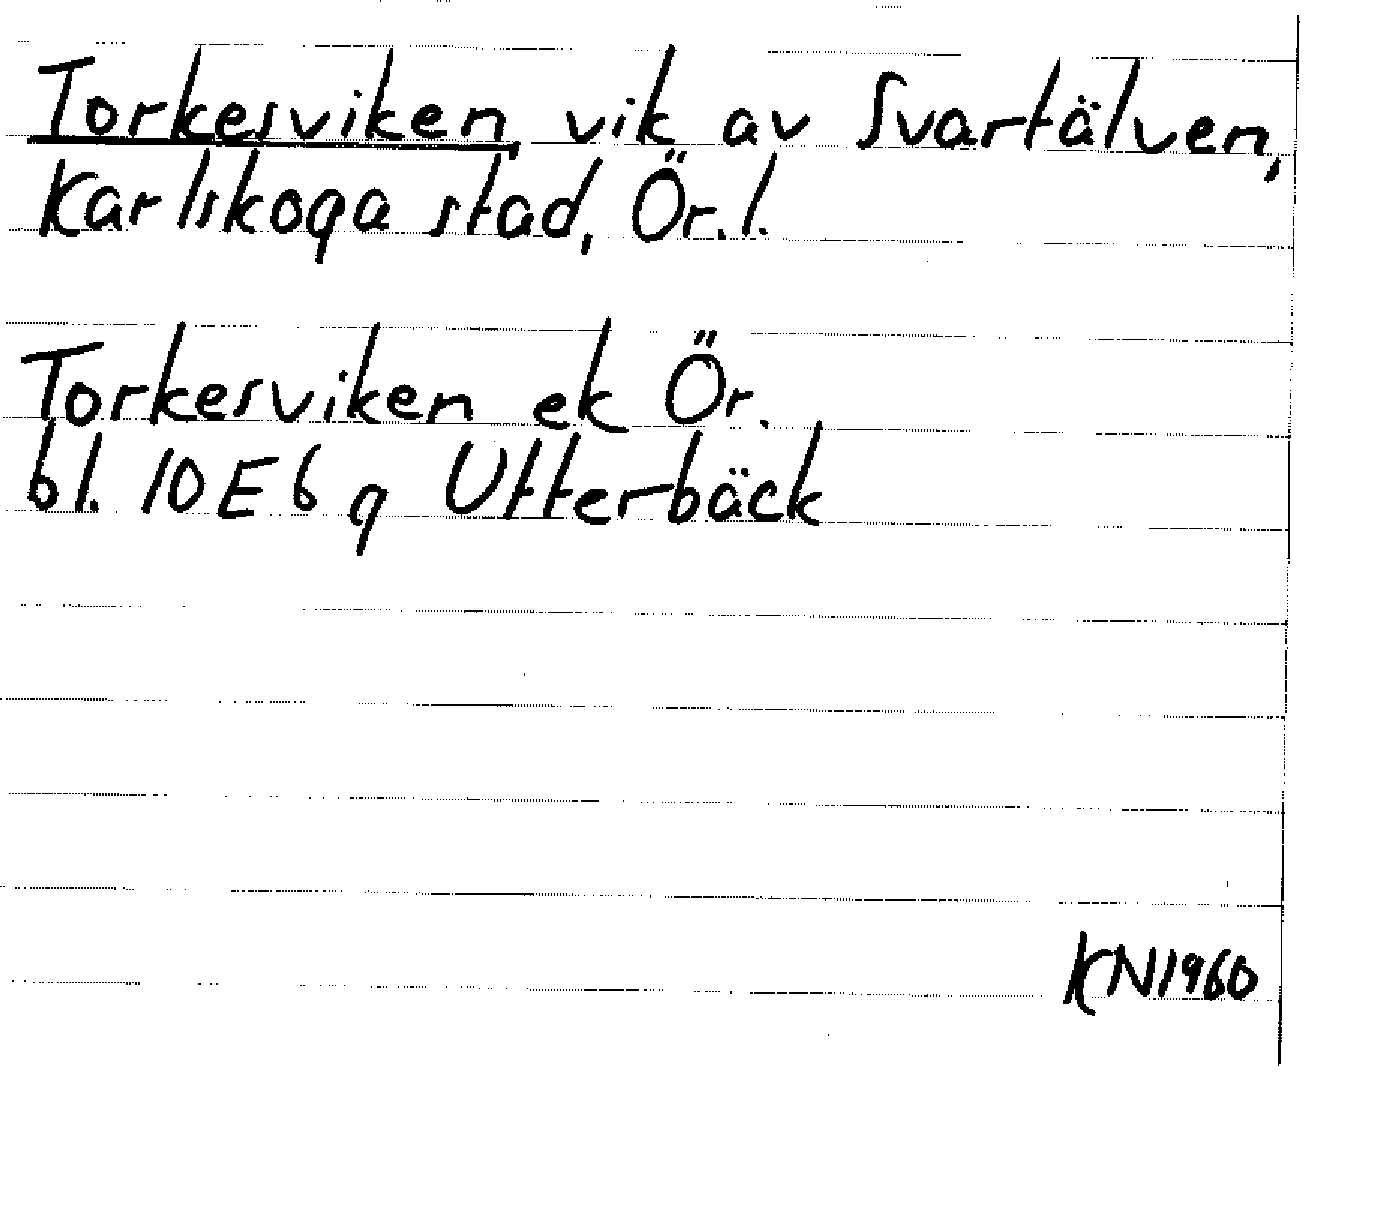 Torkesviken vik av Svartälven,
Karlskoga stad, Ör. l.
Torkesviken ek Ör.
bl. 10E6g Utterbäck
KN1960